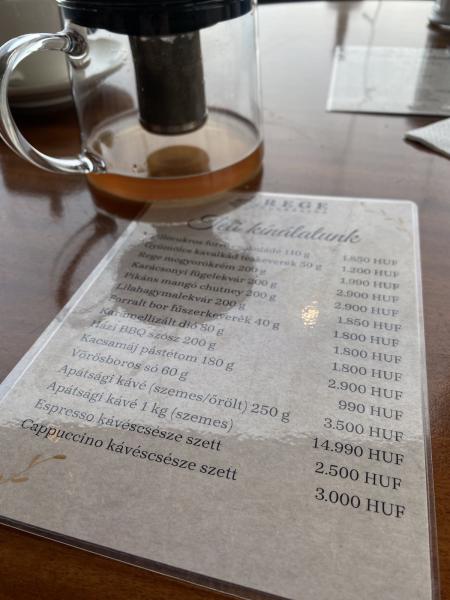 REGE
Téli kínálatunk
110 g 1.850 HUF
Gyümölcs kavalkád teakeverék 50 g 1.200 HUF
Rege mogyorókrém 200 g 1.990 HUF
Karácsonyi fügelekvár 200 g 2.900 HUF
Pikáns mangó chutney 200 g 2.900 HUF
Lilahagymalekvár 200 g 1.850 HUF
Forralt bor fűszerkeverék 40 g 1.800 HUF
Karamellizált dió 80 g 1.800 HUF
Házi BBQ szósz 200 g 1.800 HUF
Kacsamáj pástétom 180 g 2.900 HUF
Vörösboros só 60 g 990 HUF
Apátsági kávé (szemes/őrölt) 250 g 3.500 HUF
Apátsági kávé 1 kg (szemes) 14.990 HUF
Espresso kávéscsésze szett 2.500 HUF
Cappuccino kávéscsésze szett 3.000 HUF